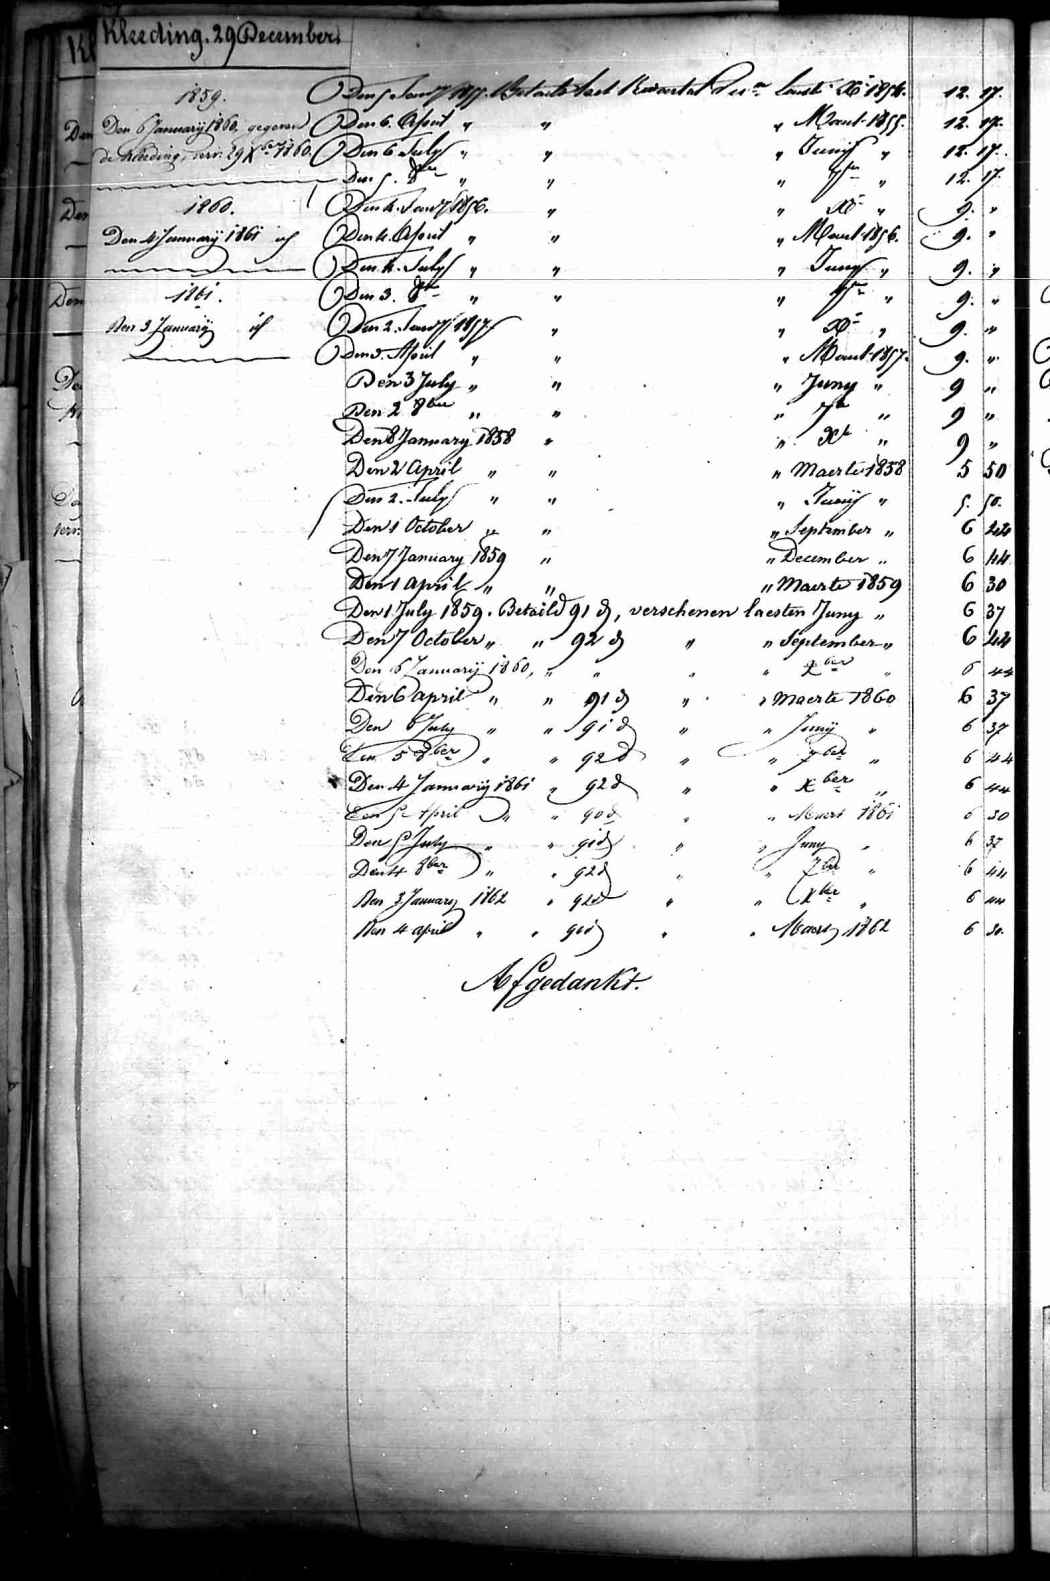 Kleeding. 29 December
1859.
Den 6 January 1860. gegeven
de kleeding, verv. 29 Xber 1860.
1860.
Den 4 January 1861 if
1861.
Den 3 January if
Den 5 Janry 1855. Betaeld het Kwartaal Laest Xr 1854. 12. 17.
Den 6. April " " " Maert 1855. 12. 17.
Den 6 July " " " Junij " 12. 17.
Den 5. 8re " " " 7re " 12. 17.
Den 4. Janry 1856. " " Xr " 9. "
Den 4. April " " " Maert 1856. 9. "
Den 4. July " " " Juny " 9. "
Den 3. 8re " " " 7re " 9. "
Den 2. Janry 1857 " " Xr " 9. "
Den 3. April " " " Maert 1857. 9. "
Den 3 July " " " Juny " 9 "
Den 2 8ber " " " 7r " 9 "
Den 8 January 1858 " " Xr " 9 "
Den 2 April " " " Maerte 1858 5 50
Den 2. July " " " Junij " 5. 50.
Den 1 October " " " September " 6 44
Den 7 January 1859 " " December " 6 44
Den 1 April " " " Maerte 1859 6 30
Den 1 July 1859. Betaeld 91 d, verschenen laesten Juny " 6 37
Den 7 October " " 92 d " " September " 6 44
Den 6 January 1860, " " " " Xber " 6 44
Den 6 April " " 91 d " " Maerte 1860 6 37
Den 6 July " " 91 d " " Junij " 6 37
Den 5 8ber " " 92 d " " 7ber " 6 44
Den 4 January 1861 " 92 d " " Xber " 6 44
Den 5 April " " 90 d " " Maert 1861 6 30
Den 5 July " " 91 d " " Juny " 6 37
Den 4 8ber " " 92 d " " 7ber " 6 44
Den 3 January 1862 " 92 d " " Xber " 6 44
Den 4 april " " 90 d " " Maert 1862 6 30.
Afgedankt.